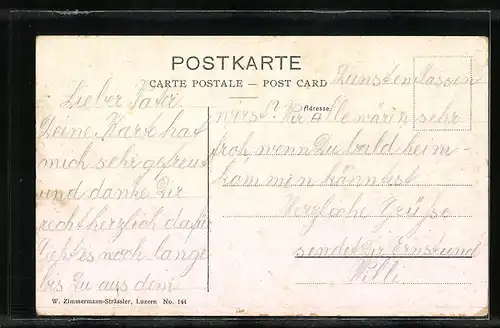 POSTKARTE
CARTE POSTALE — POST CARD
Adresse
Lieber Vater
Deine Karte hat
mich sehr gefreut
und danke Dir
rechtherzlich dafür
Geht es noch lange
bis Du aus dem
Dunsten lassen
wirst. Wir Alle wärin sehr
froh, wenn Du bald heim-
kommen könntest
Herzliche Grüsse
sendet Dir Ernst und
Willi
W. Zimmermann-Strässler, Luzern No. 144